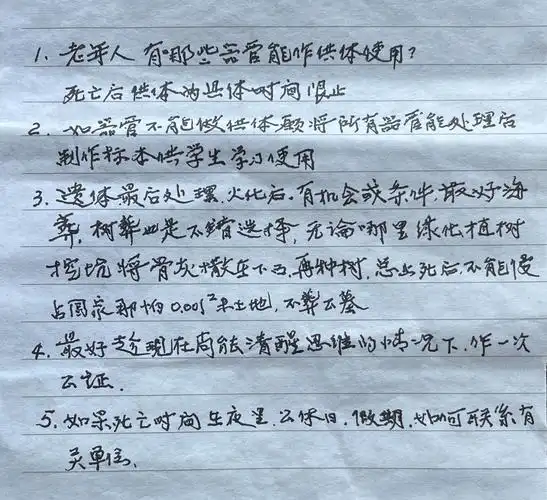 1. 老年人 有哪些器官能作供体使用?
死亡后供体的具体时间限止
2. 如器官不能做供体,愿将所有器官能处理后
制作标本供学生学习使用
3. 遗体最后处理,火化后,有机会或条件,最好海
葬,树葬也是不错选择,无论哪里绿化植树
挖坑将骨灰撒在下面,再种树,总之死后不能侵
占国家那怕0.001²米土地,不葬公墓
4. 最好趁现在尚能清醒思维的情况下,作一次
公证.
5. 如果死亡时间在夜里,公休日,假期,如何联系有
关单位.